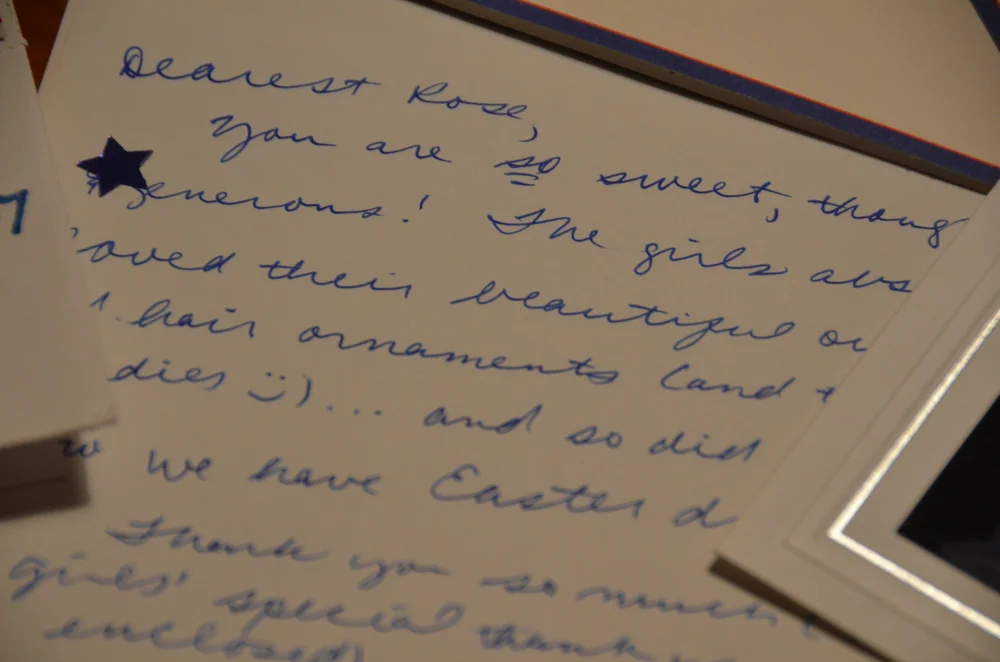 Dearest Rose,
You are so sweet, thoug
generous! The girls abs
loved their beautiful or
hair ornaments (and t
dies :)... and so did
w we have Easter d
Thank you so much
girls' special thank
enclosed!